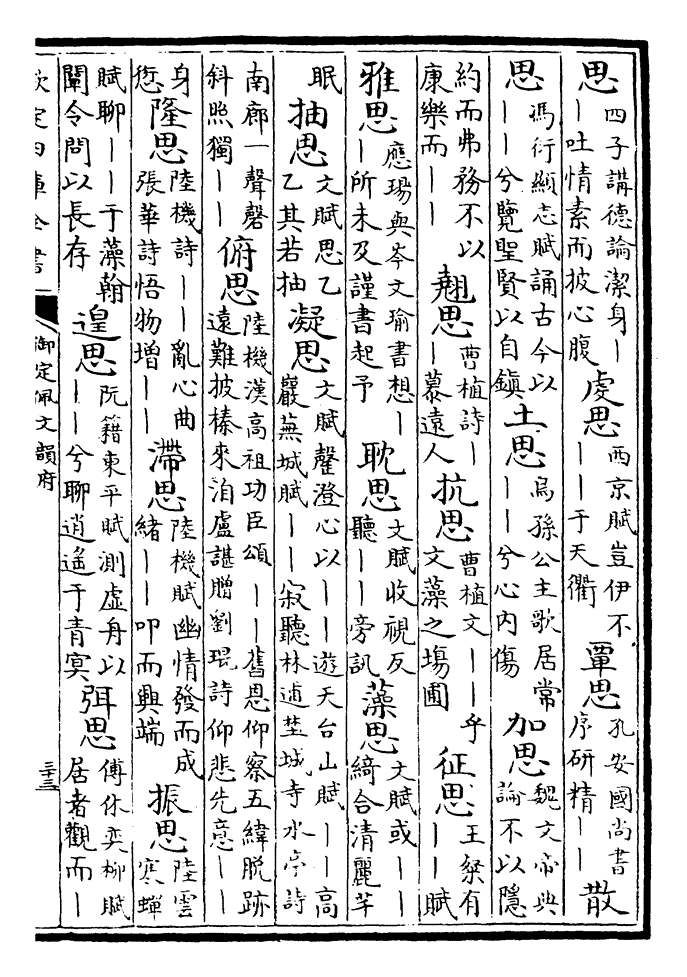 思四子講德論潔身丨丨吐情素而披心腹虔思西京賦豈伊不丨丨于天衢覃思孔安國尚書序研精丨丨散
思馮衍顯志賦誦古今以丨丨兮覽聖賢以自鎮土思烏孫公主歌居常丨丨兮心内傷加思魏文帝典論不以隱
約而弗務不以康樂而丨丨翹思曹植詩丨丨慕遠人抗思曹植文丨丨乎文藻之場圃征思王粲有丨丨賦
雅思應瑒與岑文瑜書想丨丨所未及謹書起予耽思文賦收視反聽丨丨旁訊藻思文賦或丨丨綺合清麗芊
眠抽思文賦思乙乙其若抽凝思文賦罄澄心以丨丨遊天台山賦丨丨高巖蕪城賦丨丨寂聽林逋臺城寺水亭詩
南廊一聲磬斜照獨丨丨俯思陸機漢高祖功臣頌丨丨舊恩仰察五緯脱跡遠難披榛來洎盧諶贈劉琨詩仰悲先意丨丨
身愆隆思陸機詩丨丨亂心曲張華詩悟物增丨丨滯思陸機賦幽情發而成緒丨丨叩而興端振思陸雲寒蟬
賦聊丨丨于藻翰闡令問以長存遑思阮籍東平賦測虛舟以丨丨兮聊逍遙于青冥弭思傅休奕柳賦居者觀而丨
欽定四庫全書
御定佩文韻府
三十三